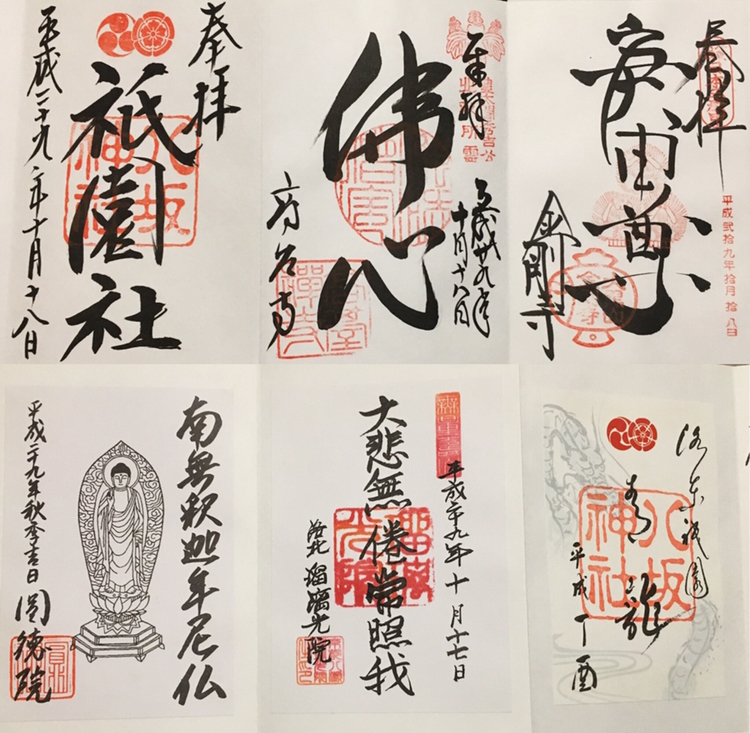 奉拝
祇園社
八坂神社
平成二十九年十月十八日
奉拝
平成廿九年
十月十八日
佛心
高台寺
奉拝
平成貳拾九年拾月拾八日
庚申尊
金剛寺
南無釈迦牟尼仏
平成二十九年秋季吉日
圓徳院
平成二十九年十月十七日
大悲無倦常照我
洛北 瑠璃光院
洛東祇園
青龍
八坂神社
平成丁酉